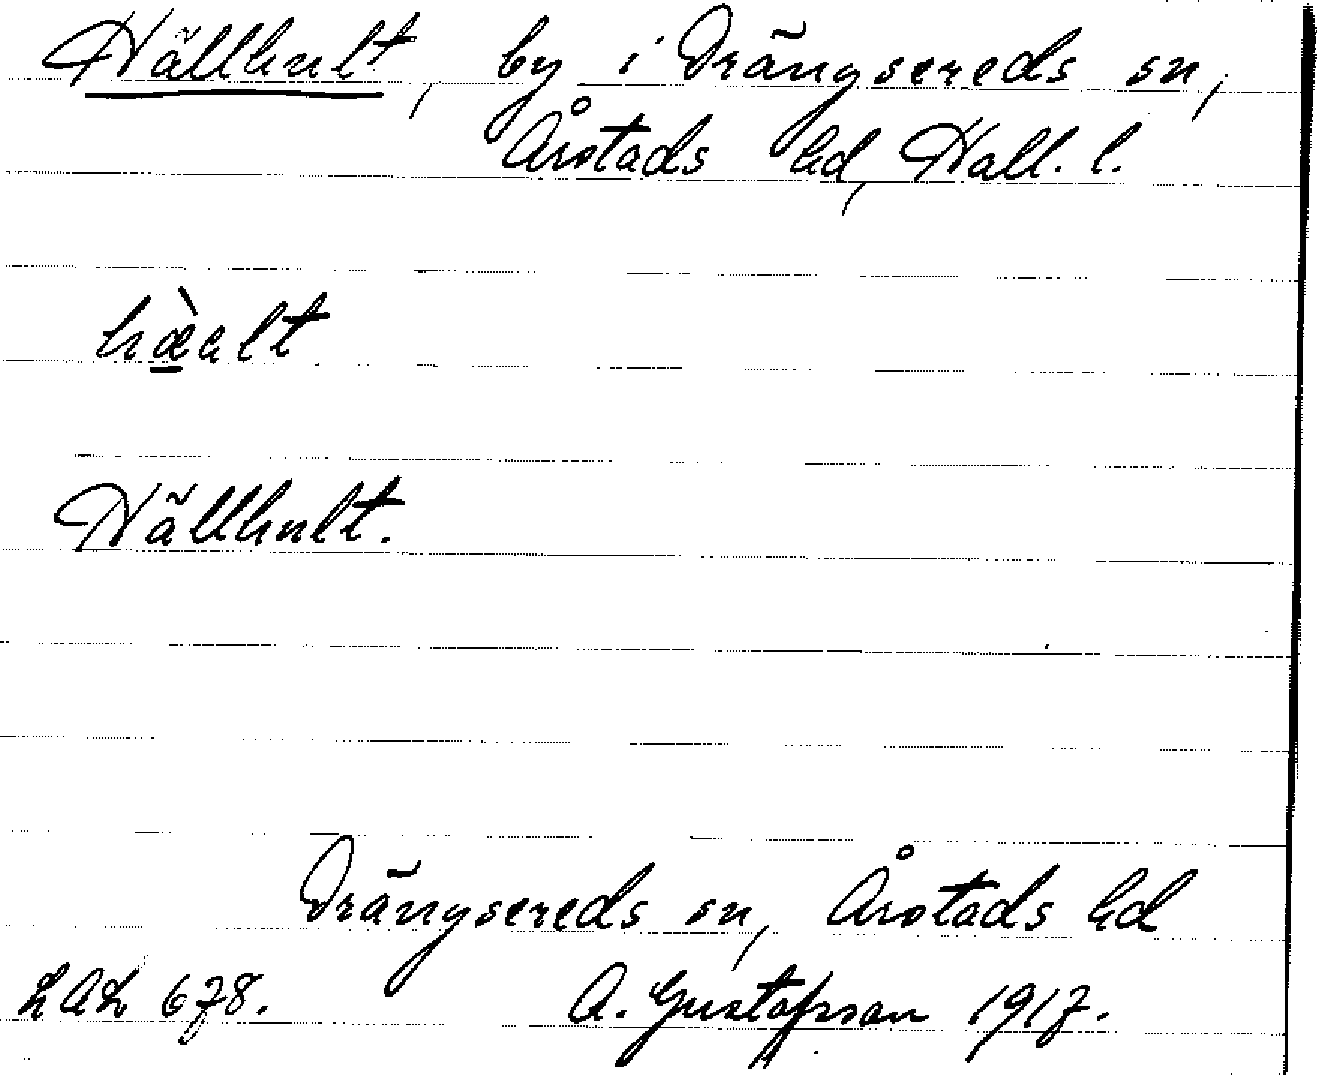 Hällhult, by i Drängsereds sn,
Årstads hd, Hall. l.
hæ̀lt
Hällhult.
Drängsereds sn, Årstads hd
LAL 678. A. Gustafsson 1917.